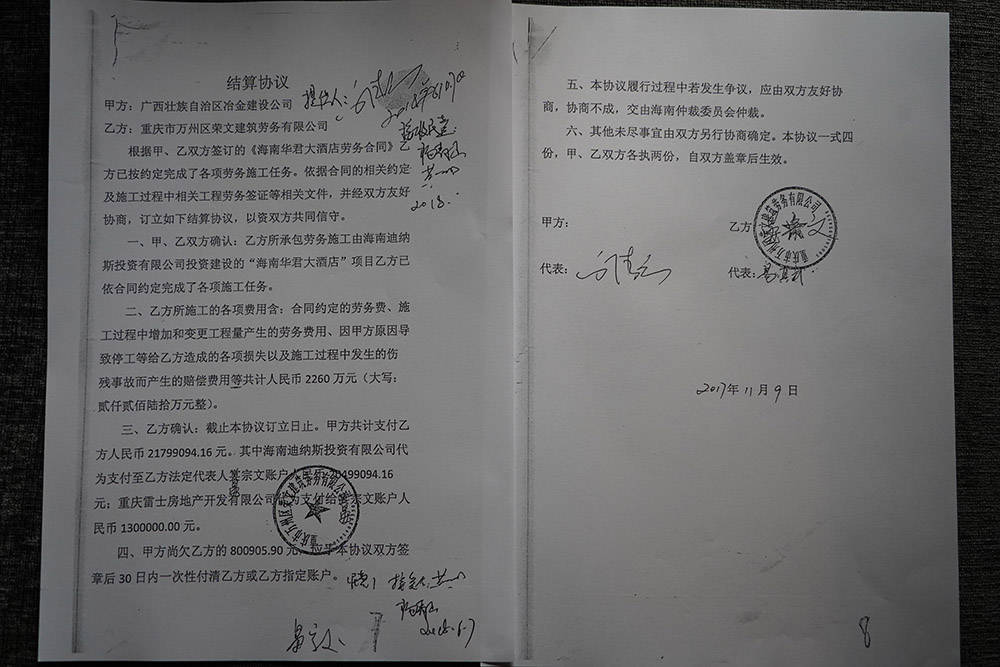 结算协议
甲方：广西壮族自治区冶金建设公司
乙方：重庆市万州区荣文建筑劳务有限公司
根据甲、乙双方签订的《海南华君大酒店劳务合同》乙
方已按约定完成了各项劳务施工任务。依据合同的相关约定
及施工过程中相关工程劳务签证等相关文件，并经双方友好
协商，订立如下结算协议，以资双方共同信守。
一、甲、乙双方确认：乙方所承包劳务施工由海南迪纳
斯投资有限公司投资建设的“海南华君大酒店”项目乙方已
依合同约定完成了各项施工任务。
二、乙方所施工的各项费用含：合同约定的劳务费、施
工过程中增加和变更工程量产生的劳务费用、因甲方原因导
致停工等给乙方造成的各项损失以及施工过程中发生的伤
残事故而产生的赔偿费用等共计人民币 2260 万元（大写：
贰仟贰佰陆拾万元整）。
三、乙方确认：截止本协议订立日止。甲方共计支付乙
方人民币 21799094.16 元。其中海南迪纳斯投资有限公司代
为支付至乙方法定代表人 宗文账户 20499094.16
元；重庆雷士房地产开发有限公司 为支付给 宗文账户人
民币 1300000.00 元。
四、甲方尚欠乙方的 800905.90 元 本协议双方签
章后 30 日内一次性付清乙方或乙方指定账户。
2018.
2018.6.7
五、本协议履行过程中若发生争议，应由双方友好协
商，协商不成，交由海南仲裁委员会仲裁。
六、其他未尽事宜由双方另行协商确定。本协议一式四
份，甲、乙双方各执两份，自双方盖章后生效。
甲方：
乙方
重庆市万州区荣文建筑劳务有限公司
代表：
代表：
2017年 11月 9日
重庆市万州区荣文建筑劳务有限公司
8